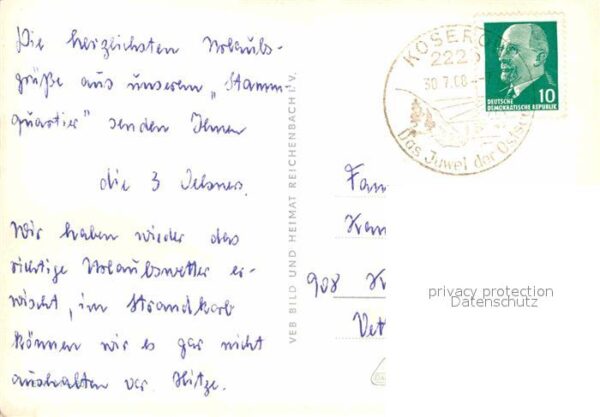 Die herzlichsten Urlaubs-
grüße aus unserem „Stamm-
quartier" senden Ihnen
die 3
Wir haben wieder das
richtige Urlaubswetter er-
wischt, im Strandkorb
können wir es gar nicht
aushalten vor Hitze.
VEB BILD UND HEIMAT REICHENBACH i. V.
KOSEROW
222
30.7.68
Das Juwel der Ostsee
10
DEUTSCHE
DEMOKRATISCHE REPUBLIK
Fam
908
privacy protection
Datenschutz